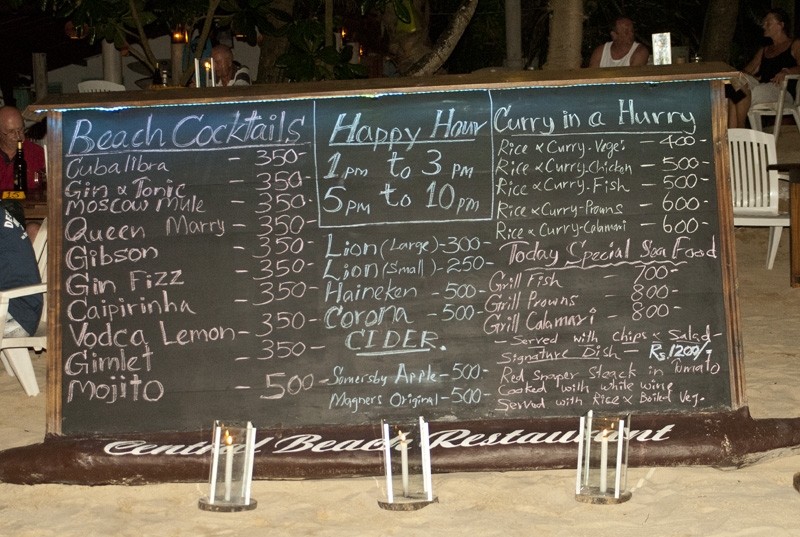 Beach Cocktails
Cubalibra - 350-
Gin & Tonic - 350-
Moscow Mule - 350-
Queen Marry - 350-
Gibson - 350-
Gin Fizz - 350-
Caipirinha - 350-
Vodca Lemon - 350-
Gimlet - 350-
Mojito - 500-
Happy Hour
1pm to 3 pm
5pm to 10 pm
Lion (Large) - 300-
Lion (Small) - 250-
Haineken - 500-
Corona - 500-
CIDER.
Somersby Apple - 500-
Magners Original - 500-
Curry in a Hurry
Rice & Curry-Vegei - 400-
Rice & Curry-Chicken - 500-
Rice & Curry-Fish - 500-
Rice & Curry-Prowns - 600-
Rice & Curry-Calamari - 600-
Today Special Sea Food
Grill Fish - 700-
Grill Prowns - 800-
Grill Calamari - 800-
- Served with Chips & Salad-
Signature Dish - Rs 1200/-
Red Snaper Steack in Tomato
Cooked with white wine
Served with Rice & Boiled Veg.
Central Beach Restaurant